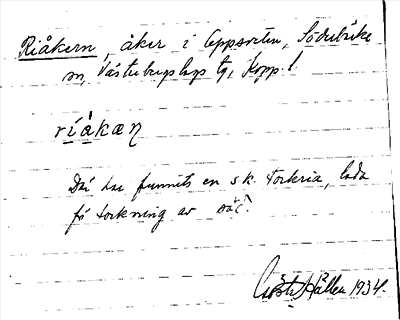 Riåkern, åker i Uppsveten, Söderbärke
sn, Västerbergslags tg, Kopp. l.
ríåkæɳ
Där har funnits en s.k. torkria, lada
fö torkning av säd.
Gösta Hållen 1934.